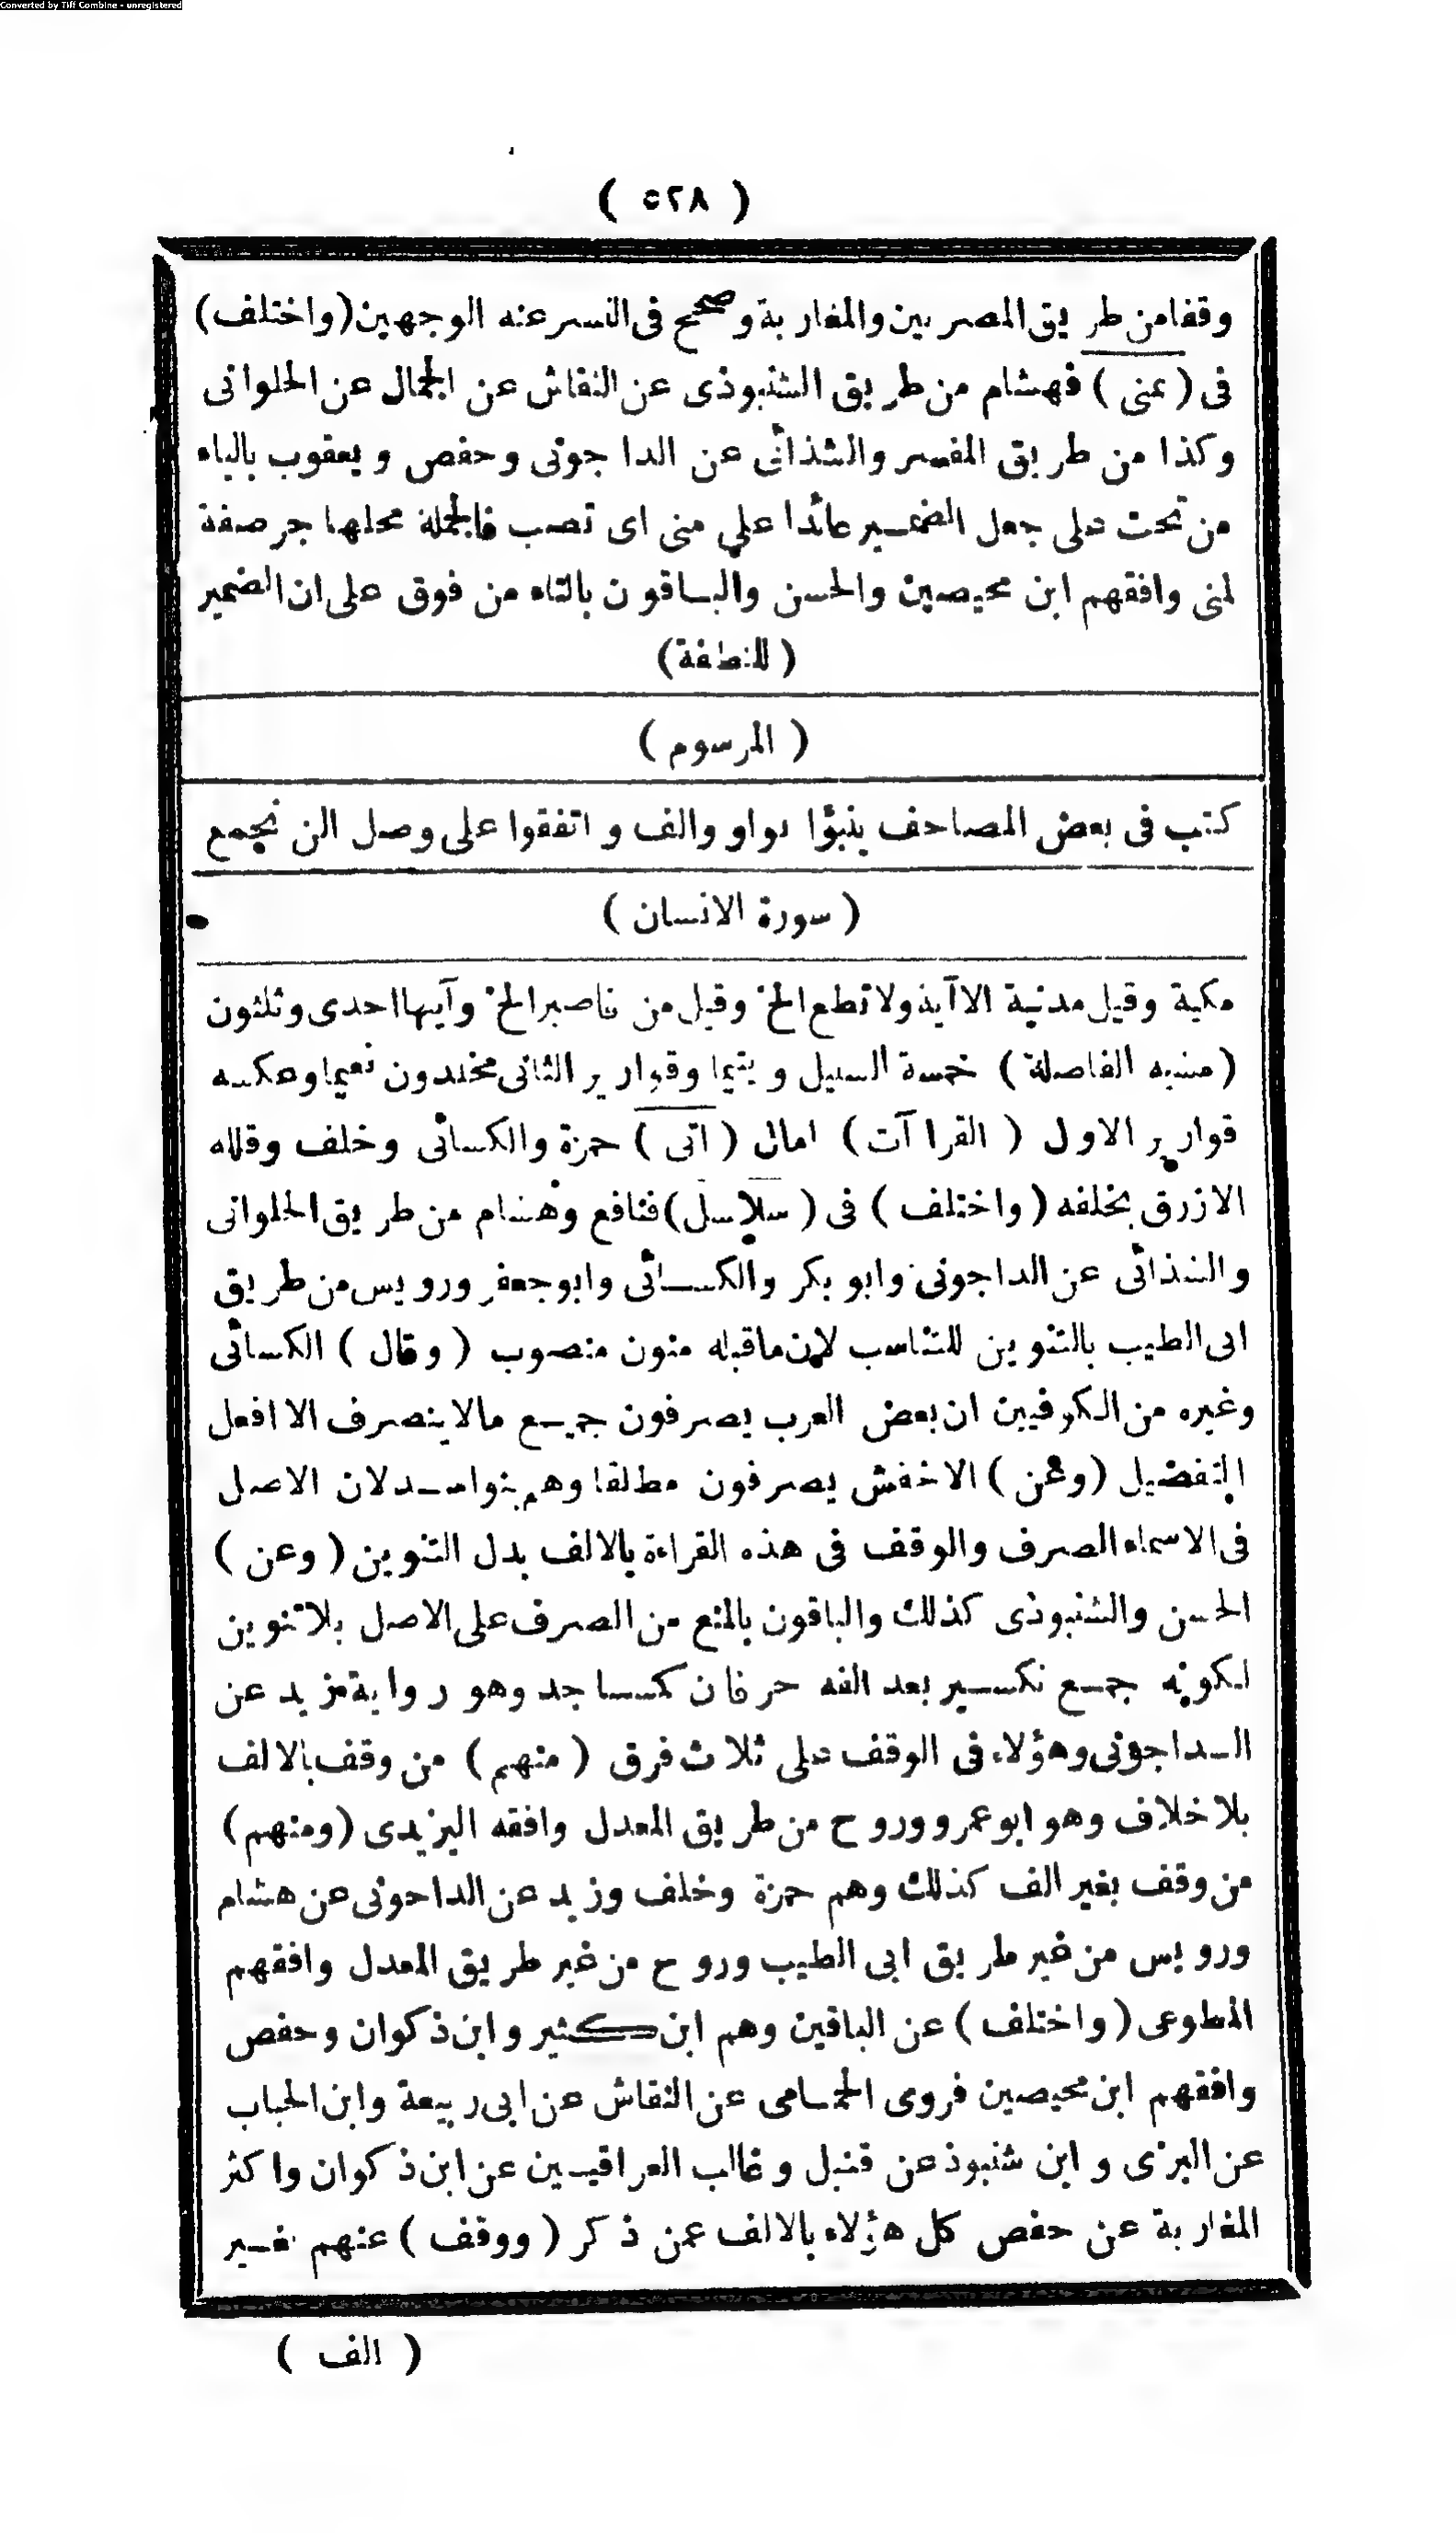 Converted by Tiff Combine - unregistered
( ٥٢٨ )
وقفا من طريق المصريين والمغاربة وصحح فى النسر عنه الوجهين (واختلف)
فى ( يمنى ) فهشام من طريق الشنبوذى عن النقاش عن الجمال عن الحلوانى
وكذا من طريق المفسر والشذائى عن الداجونى وحفص ويعقوب بالياء
من تحت على جعل الضمير عائدا على منى اى تصب فالجملة محلها جر صفة
لمنى وافقهم ابن محيصين والحسن والباقون بالتاء من فوق على ان الضمير
( للنطفة )
( المرسوم )
كتب فى بعض المصاحف ينبؤا بواو والف و اتفقوا على وصل الن نجمع
( سورة الانسان )
مكية وقيل مدنية الا آية ولا تطع الخ وقيل من فاصبر الخ وآيها احدى وثلثون
( مشبه الفاصلة ) خمسة السبيل ويتيما وقوارير الثانى مخلدون نعيما وعكسه
قوارير الاول ( القراآت ) امال ( اتى ) حمزة والكسائى وخلف وقلله
الازرق بخلفه ( واختلف ) فى ( سلاسل ) فنافع وهشام من طريق الحلوانى
والشذائى عن الداجونى وابو بكر والكسائى وابو جعفر ورويس من طريق
ابى الطيب بالتنوين للتناسب لان ماقبله منون منصوب ( وقال ) الكسائى
وغيره من الكوفيين ان بعض العرب يصرفون جميع مالاينصرف الا افعل
التفضيل ( وعن ) الاخفش يصرفون مطلقا وهم بنو اسد لان الاصل
فى الاسماء الصرف والوقف فى هذه القراءة بالالف بدل التنوين ( وعن )
الحسن والشنبوذى كذلك والباقون بالمنع من الصرف على الاصل بلاتنوين
لكونه جمع تكسير بعد الفه حرفان كمساجد وهو رواية مزيد عن
الداجونى وهؤلاء فى الوقف على ثلاث فرق ( منهم ) من وقف بالالف
بلاخلاف وهو ابو عمرو وروح من طريق المعدل وافقه اليزيدى ( ومنهم )
من وقف بغير الف كذلك وهم حمزة وخلف وزيد عن الداجونى عن هشام
ورويس من غير طريق ابى الطيب وروح من غير طريق المعدل وافقهم
المطوعى ( واختلف ) عن الباقين وهم ابن كثير وابن ذكوان وحفص
وافقهم ابن محيصين فروى الحمامى عن النقاش عن ابى ربيعة وابن الحباب
عن البزى و ابن شنبوذ عن قنبل وغالب العراقيين عن ابن ذكوان واكثر
المغاربة عن حفص كل هؤلاء بالالف عمن ذكر ( ووقف ) عنهم بغير
( الف )